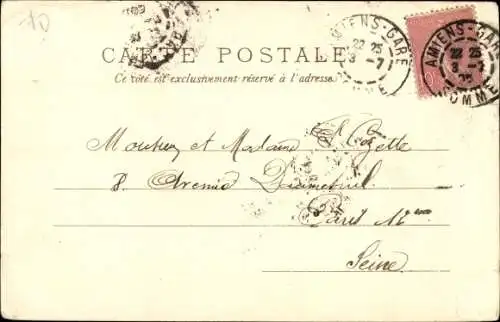 CARTE POSTALE
Ce côté est exclusivement réservé à l'adresse
AMIENS-GARE
22 25
3 -7
SOMME
AMIENS-GARE
22 25
3 -7
SOMME
Monsieur et Madame
8. Avenue Daumesnil
Paris 12 ème
Seine